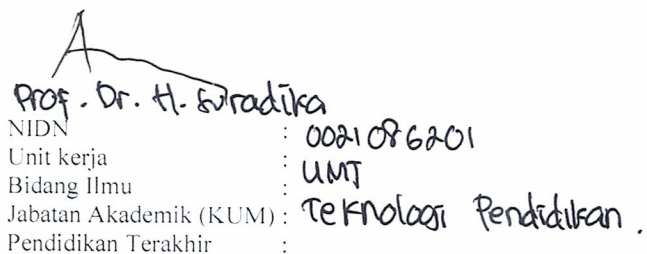 Prof. Dr. H. Suradika
NIDN : 0021086201
Unit kerja : UMJ
Bidang Ilmu :
Jabatan Akademik (KUM) : Teknologi Pendidikan.
Pendidikan Terakhir :